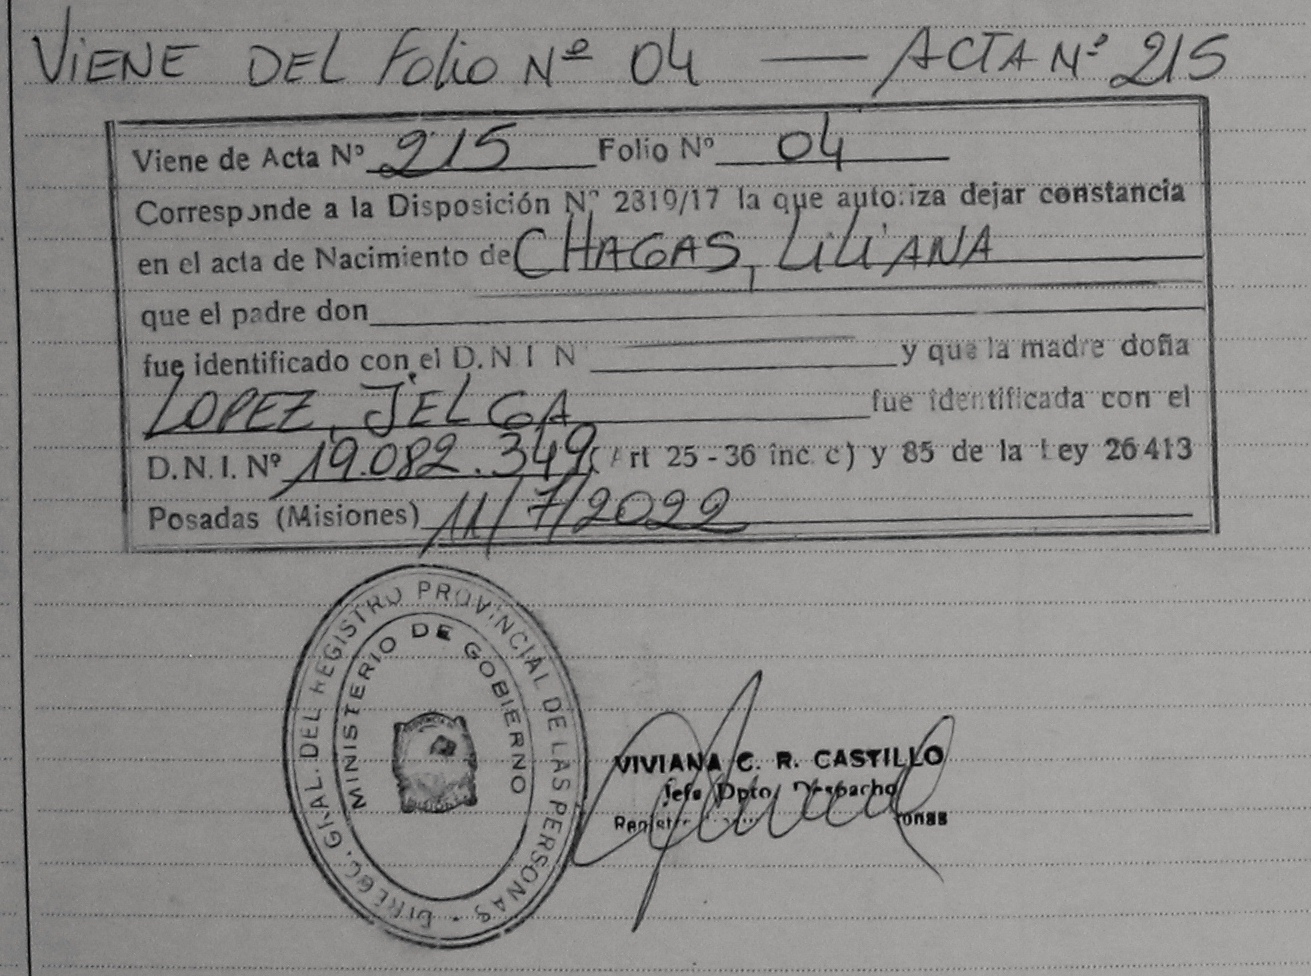 VIENE DEL FOLIO Nº 04 — ACTA Nº 215
Viene de Acta Nº 215 Folio Nº 04
Corresponde a la Disposición Nº 2319/17 la que autoriza dejar constancia
en el acta de Nacimiento de CHAGAS, LILIANA
que el padre don
fue identificado con el D.N.I N y que la madre doña
LOPEZ, JELGA fue identificada con el
D.N.I. Nº 19.082.349 (Art 25 - 36 inc. c) y 85 de la Ley 26413
Posadas (Misiones) 11/7/2022
DIREGC. GRAL. DEL REGISTRO PROVINCIAL DE LAS PERSONAS
MINISTERIO DE GOBIERNO
VIVIANA C. R. CASTILLO
Jefe Dpto. Despacho